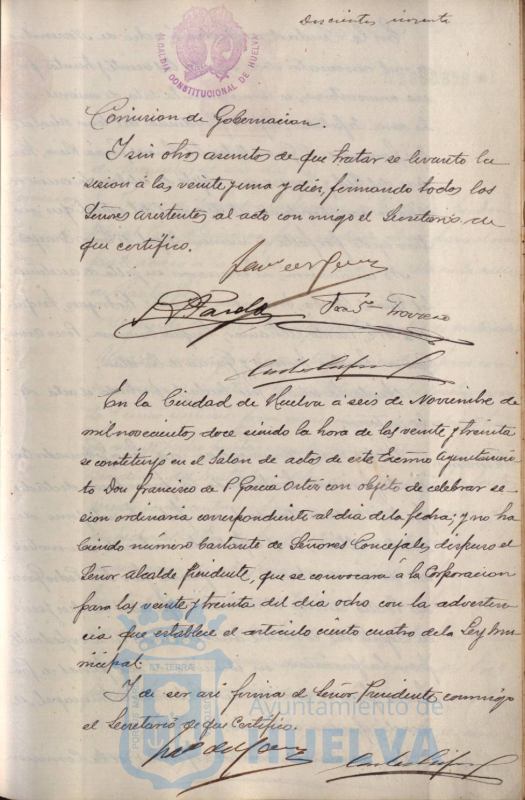 Doscientos noventa
ALCALDIA CONSTITUCIONAL DE HUELVA
Comision de Gobernacion.
Y sin otros asuntos de que tratar se levanto la
sesion á las veinte y una y diez, firmando todos los
Señores asistentes al acto con migo el Secretario de
que certifico.
En la Ciudad de Huelva á seis de Noviembre de
mil novecientos doce siendo la hora de las veinte y treinta
se constituyó en el Salon de actos de este Excmo Ayuntamien
to Don Francisco de P. Garcia Ortiz con objeto de celebrar se
sion ordinaria correspondiente al dia de la fecha; y no ha
biendo número bastante de Señores Concejales, dispuso el
Señor Alcalde Presidente, que se convocara á la Corporacion
para las veinte y treinta del dia ocho con la adverten
cia que establece el articulo ciento cuatro de la Ley Mu
nicipal.
Y de ser asi firma el Señor Presidente, conmigo
el Secretario de que certifico.
Ayuntamiento de
HUELVA